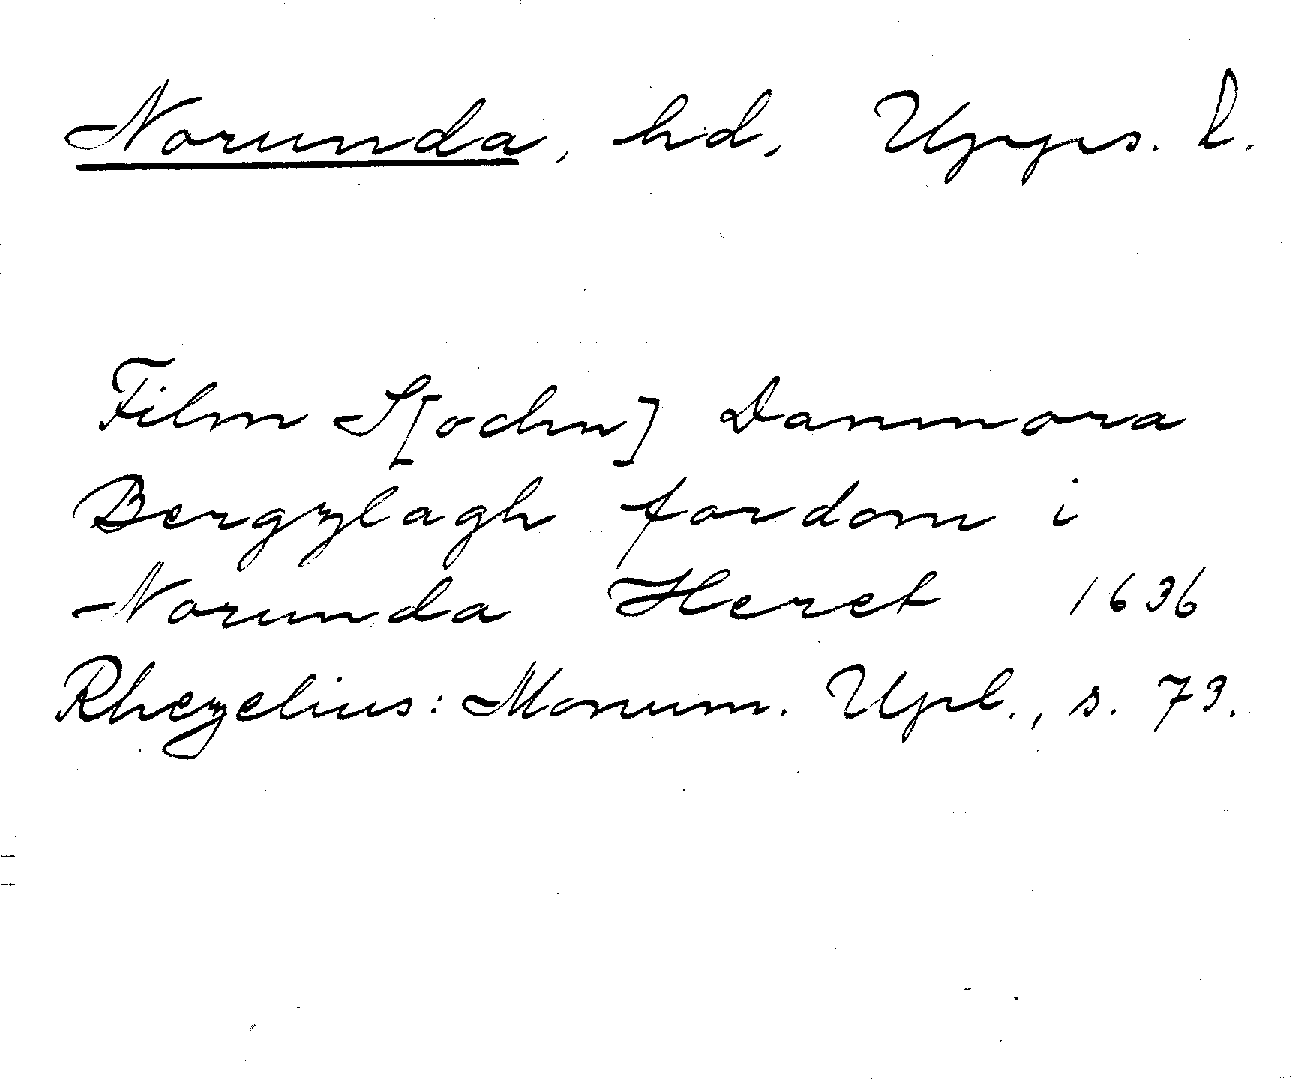 Norunda, hd, Upps. l.
Film S[ochn] Danmora
Bergzlagh fordom i
Norunda Heret 1636
Rhezelius: Monum. Upl., s. 73.